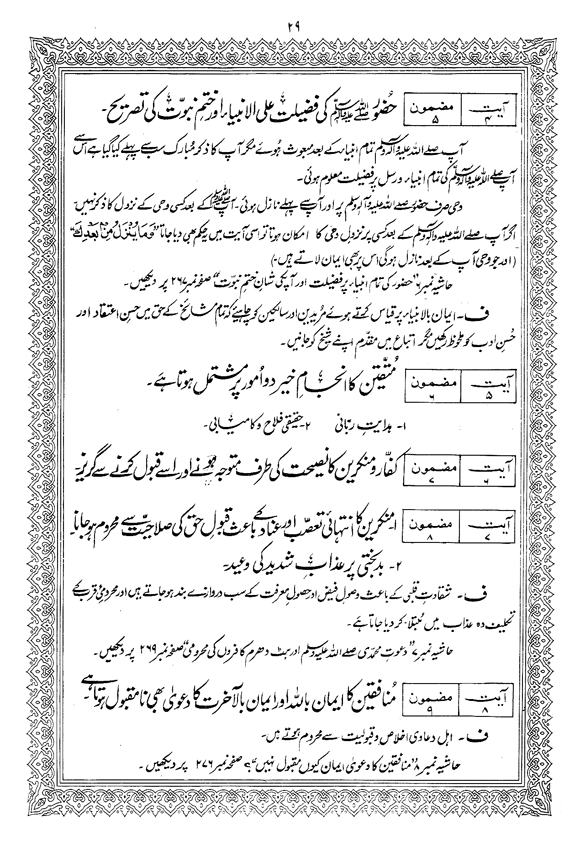 ۲۹
آیت ۴ مضمون ۵ حضور ﷺ کی فضیلت علی الانبیاء اور ختم نبوت کی تصریح۔
آپ صلے اللہ علیہ وآلہ وسلم تمام انبیاء کے بعد مبعوث ہوئے مگر آپ کا ذکر مبارک سب سے پہلے کیا گیا ہے اس سے
آپ صلے اللہ علیہ وآلہ وسلم کی تمام انبیاء و رسل پر فضیلت معلوم ہوئی۔
وحی صرف حضور صلے اللہ علیہ وآلہ وسلم پر اور آپ سے پہلے نازل ہوئی۔ آپ ﷺ کے بعد کسی وحی کے نزول کا ذکر نہیں
اگر آپ صلے اللہ علیہ وآلہ وسلم کے بعد کسی پر نزول وحی کا امکان ہوتا تو اسی آیت میں یہ حکم بھی دیا جاتا "وَمَا يُنْزَلُ مِنْ بَعْدِكَ"
(اور جو وحی آپ کے بعد نازل ہوگی اس پر بھی ایمان لاتے ہیں۔)
حاشیہ نمبر ۴ "حضور کی تمام انبیاء پر فضیلت اور آپ کی شانِ ختم نبوت" صفحہ نمبر ۲۶۷ پر دیکھیں۔
ف۔ ایمان بالانبیاء پر قیاس کرتے ہوئے مریدین اور سالکین کو چاہیئے کہ تمام مشائخ کے حق میں حسنِ اعتقاد اور
حُسنِ ادب کو ملحوظ رکھیں مگر اتباع میں مقدم اپنے شیخ کو جانیں۔
آیت ۵ مضمون ۶ مُتّقین کا انجامِ خیر دو امور پر مشتمل ہوتا ہے۔
۱۔ ہدایتِ ربانی ۲۔ حقیقی فلاح و کامیابی۔
آیت ۶ مضمون ۷ کفار و منکرین کا نصیحت کی طرف متوجہ ہونے اور اسے قبول کرنے سے گریز۔
آیت ۷ مضمون ۸ ۱۔ منکرین کا انتہائی تعصب اور عناد کے باعث قبولِ حق کی صلاحیت سے محروم ہو جانا۔
۲۔ بدبختی پر عذاب شدید کی وعید۔
ف۔ شقاوتِ قلبی کے باعث وصولِ فیض اور حصولِ معرفت کے سب دروازے بند ہو جاتے ہیں اور محرومیِ قرب کے
تکلیف دہ عذاب میں مُبتلا کر دیا جاتا ہے۔
حاشیہ نمبر ۷ "دعوتِ محمدی صلے اللہ علیہ وسلم اور ہٹ دھرم کافروں کی محرومی" صفحہ نمبر ۲۶۹ پر دیکھیں۔
آیت ۸ مضمون ۹ مُنافقین کا ایمان باللہ اور ایمان بالآخرت کا دعویٰ بھی نا مقبول ہوتا ہے
ف۔ اہل دعاوی اخلاص و قبولیت سے محروم ہوتے ہیں۔
حاشیہ نمبر ۸ "منافقین کا دعویٰ ایمان کیوں مقبول نہیں"؟ صفحہ نمبر ۲۷۶ پر دیکھیں۔